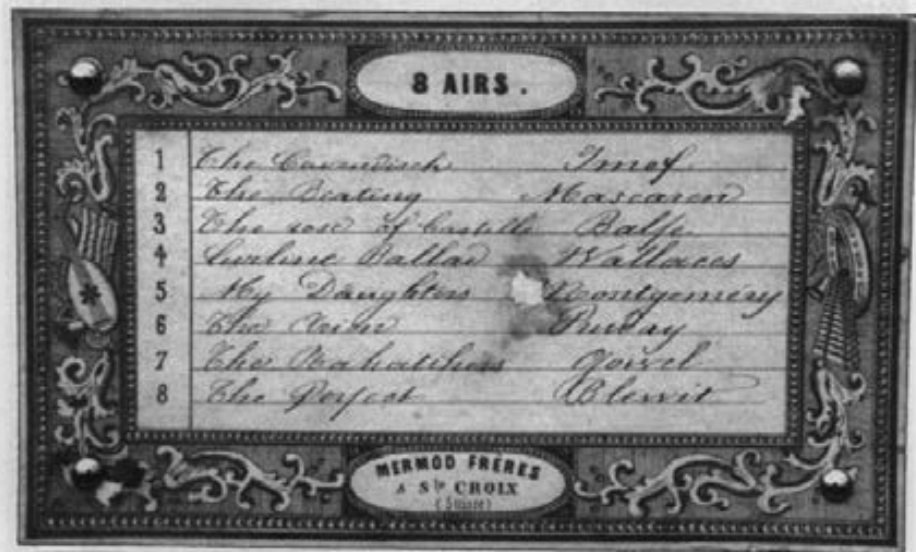 8 AIRS.
1 The Cavendisch Imof
2 The Beating Mascaren
3 The rose of Castille Balfe
4 Lurline Ballad Wallaces
5 My Daughters Montgomery
6 The
7 The
8 The Perfect Blewit
MERMOD FRÈRES
A Ste CROIX
(Suisse)